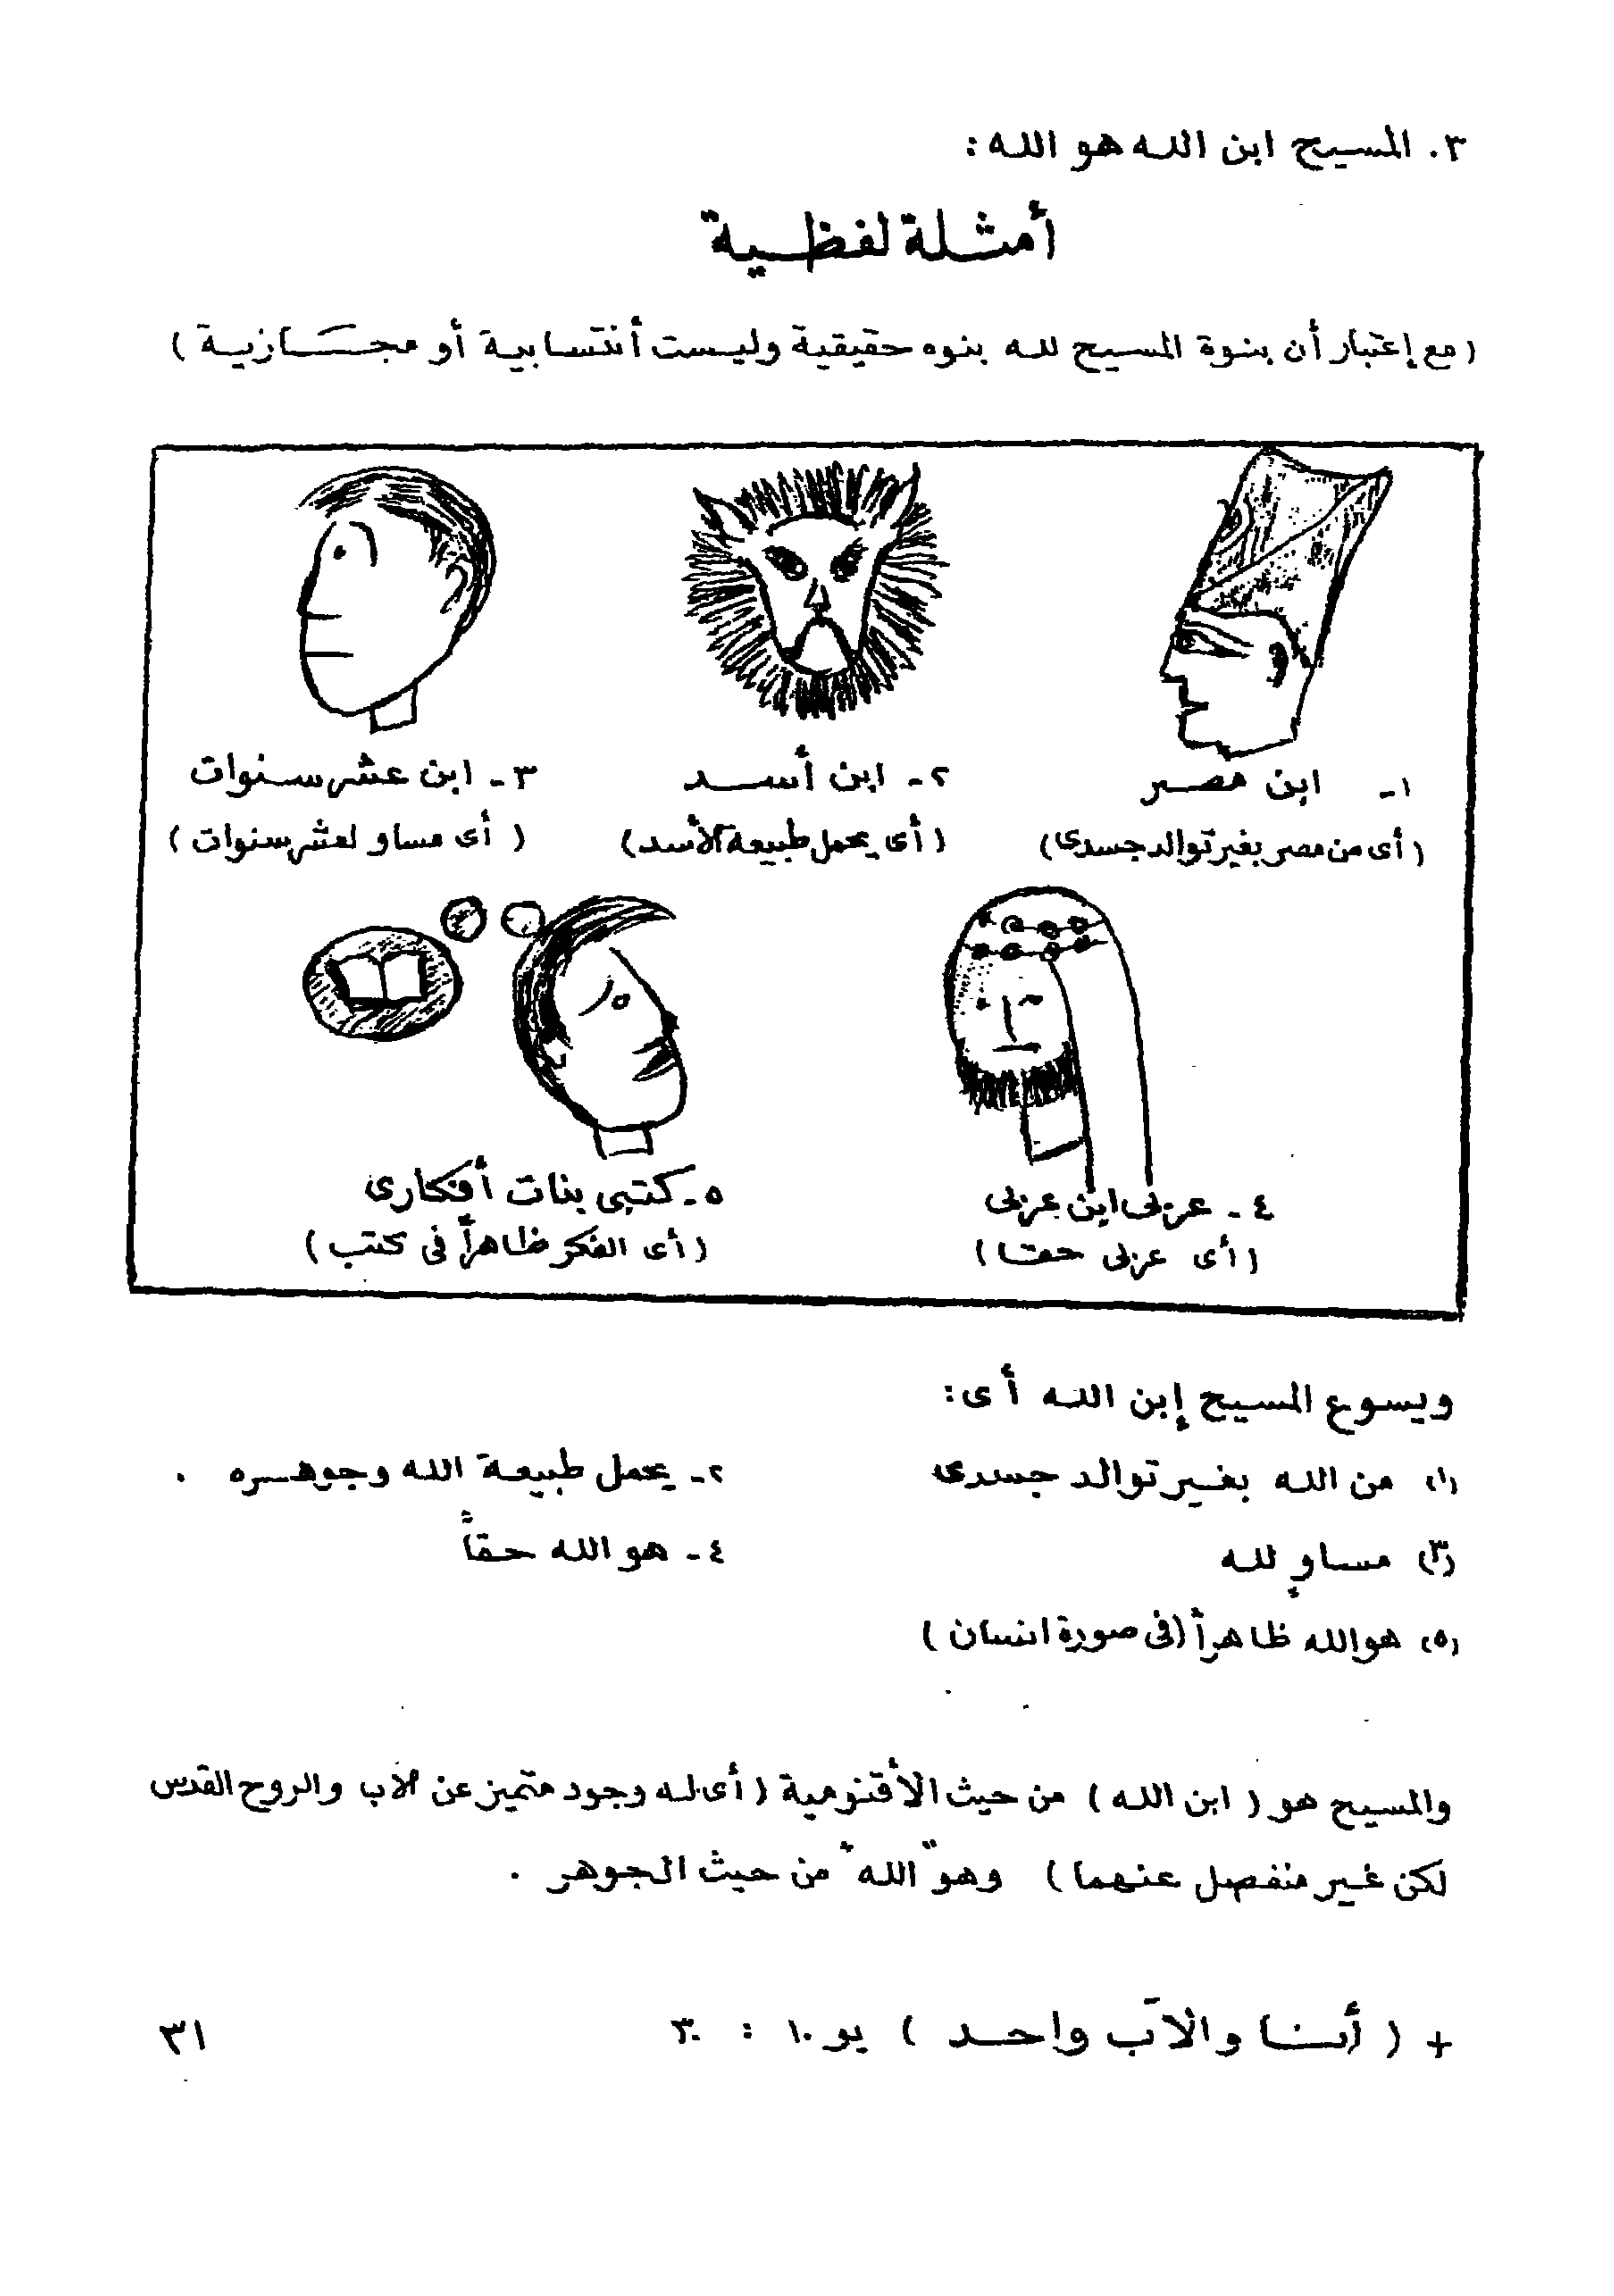 ٣. المسيح ابن الله هو الله :
أمثلة لفظية
( مع إعتبار أن بنوة المسيح لله بنوه حقيقية وليست أنتسابية أو مجازية )
١- ابن مصر
( أى من مصر بغير توالد جسدى )
٢- ابن أسد
( أى يحمل طبيعة الأسد )
٣- ابن عشر سنوات
( أى مساو لعشر سنوات )
٤- عربى ابن عربى
( أى عربى حقا )
٥- كتبى بنات أفكارى
( أى الفكر ظاهراً فى كتب )
ويسوع المسيح إبن الله أى :
(١) من الله بغير توالد جسدى
٢- يحمل طبيعة الله وجوهره .
(٣) مساوٍ لله
٤- هو الله حقاً
(٥) هو الله ظاهراً ( فى صورة انسان )
والمسيح هو ( ابن الله ) من حيث الأقنومية ( أى له وجود متميز عن الآب والروح القدس
لكن غير منفصل عنهما ) وهو "الله" من حيث الجوهر .
+ ( أنا والآب واحد ) يو ١٠ : ٣٠
٣١